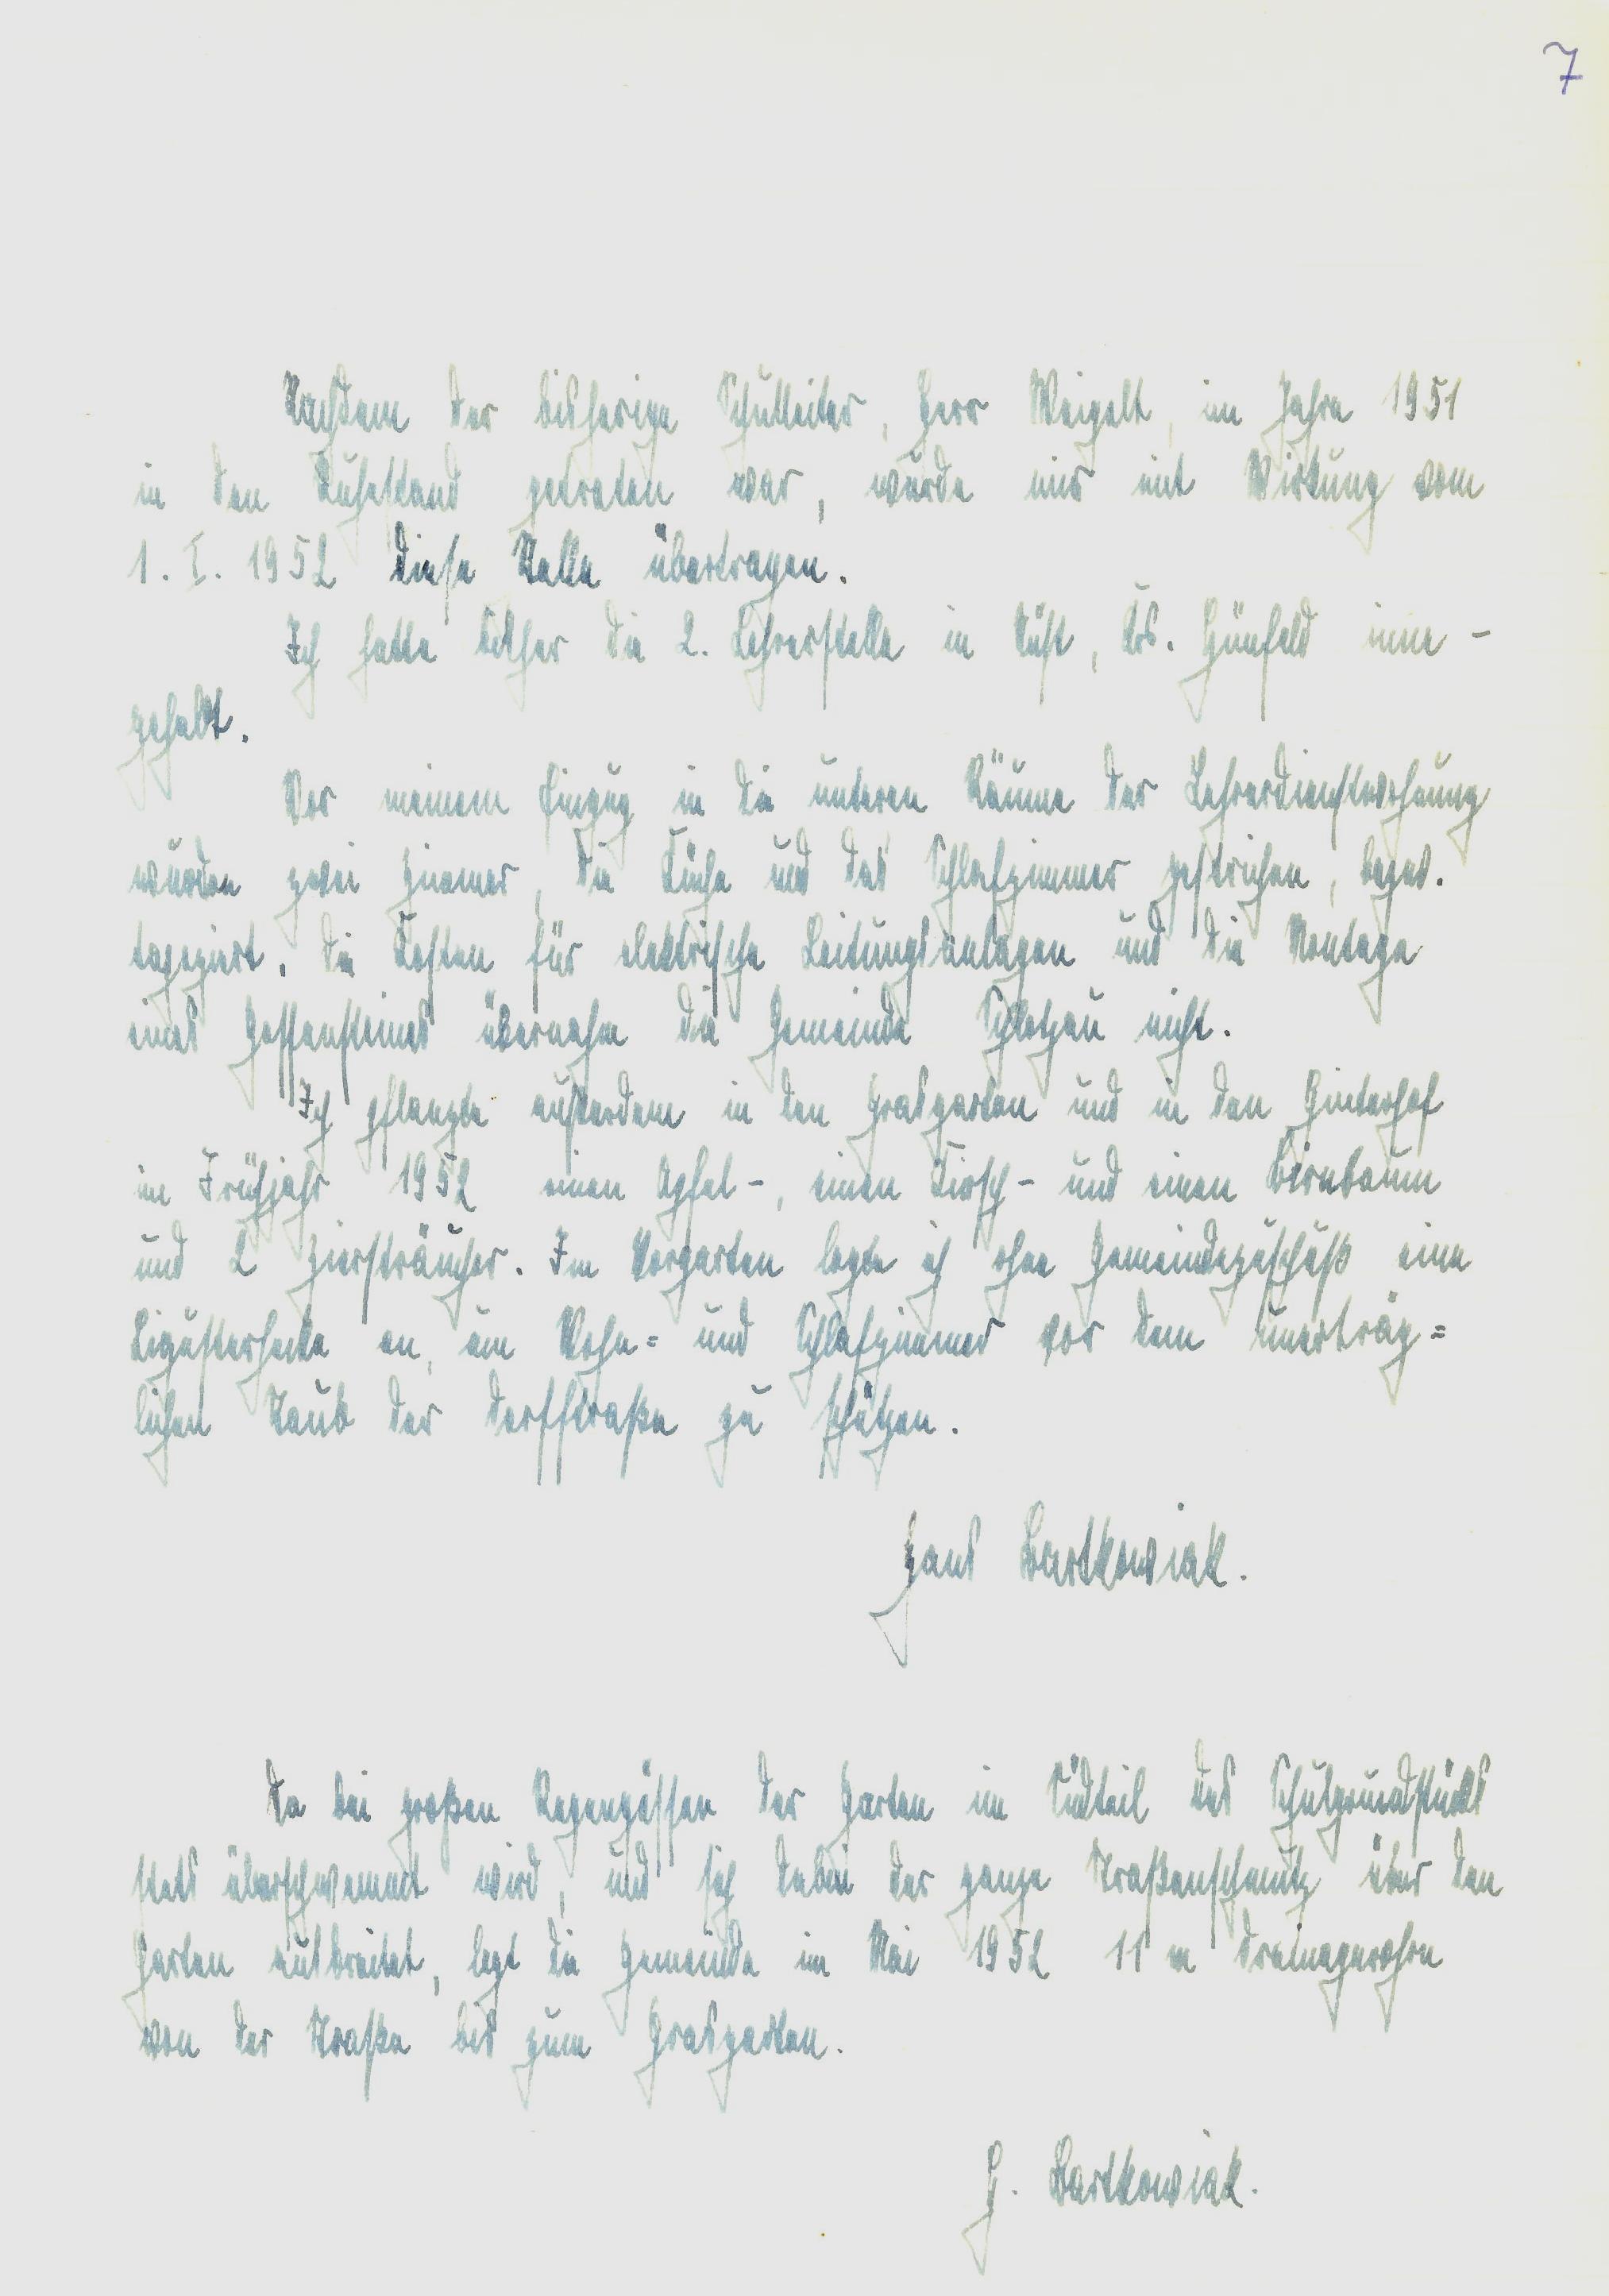 7
Nachdem der bisherige Schulleiter, Herr Weigelt, im Jahre 1951
in den Ruhestand getreten war, wurde mir mit Wirkung vom
1. I. 1952 diese Stelle übertragen.
Ich hatte bisher die 2. Lehrerstelle in Rüst, Krs. Hünfeld inne-
gehabt.
Vor meinem Einzug in die unteren Räume der Lehrerdienstwohnung
wurden zwei Zimmer, die Küche und das Schlafzimmer gestrichen, bezw.
tapeziert. Die Kosten für elektrische Leitungsanlagen und die Montage
eines Gossensteines übernahm die Gemeinde Schlotzau nicht.
Ich pflanzte außerdem in den Grasgarten und in den Hinterhof
im Frühjahr 1952 einen Apfel-, einen Kirsch- und einen Birnbaum
und 2 Ziersträucher. Im Vorgarten legte ich ohne Gemeindezuschuß eine
Ligusterhecke an, um Wohn= und Schlafzimmer vor dem unerträg=
lichen Staub der Dorfstraße zu schützen.
Hans Bartkowiak.
Da bei großen Regengüssen der Garten im Südteil des Schulgrundstücks
stets überschwemmt wird, und sich dabei der ganze Straßenschmutz über den
Garten ausbreitet, legt die Gemeinde im Mai 1952 11 m Drainagerohre
von der Straße bis zum Grasgarten.
H. Bartkowiak.